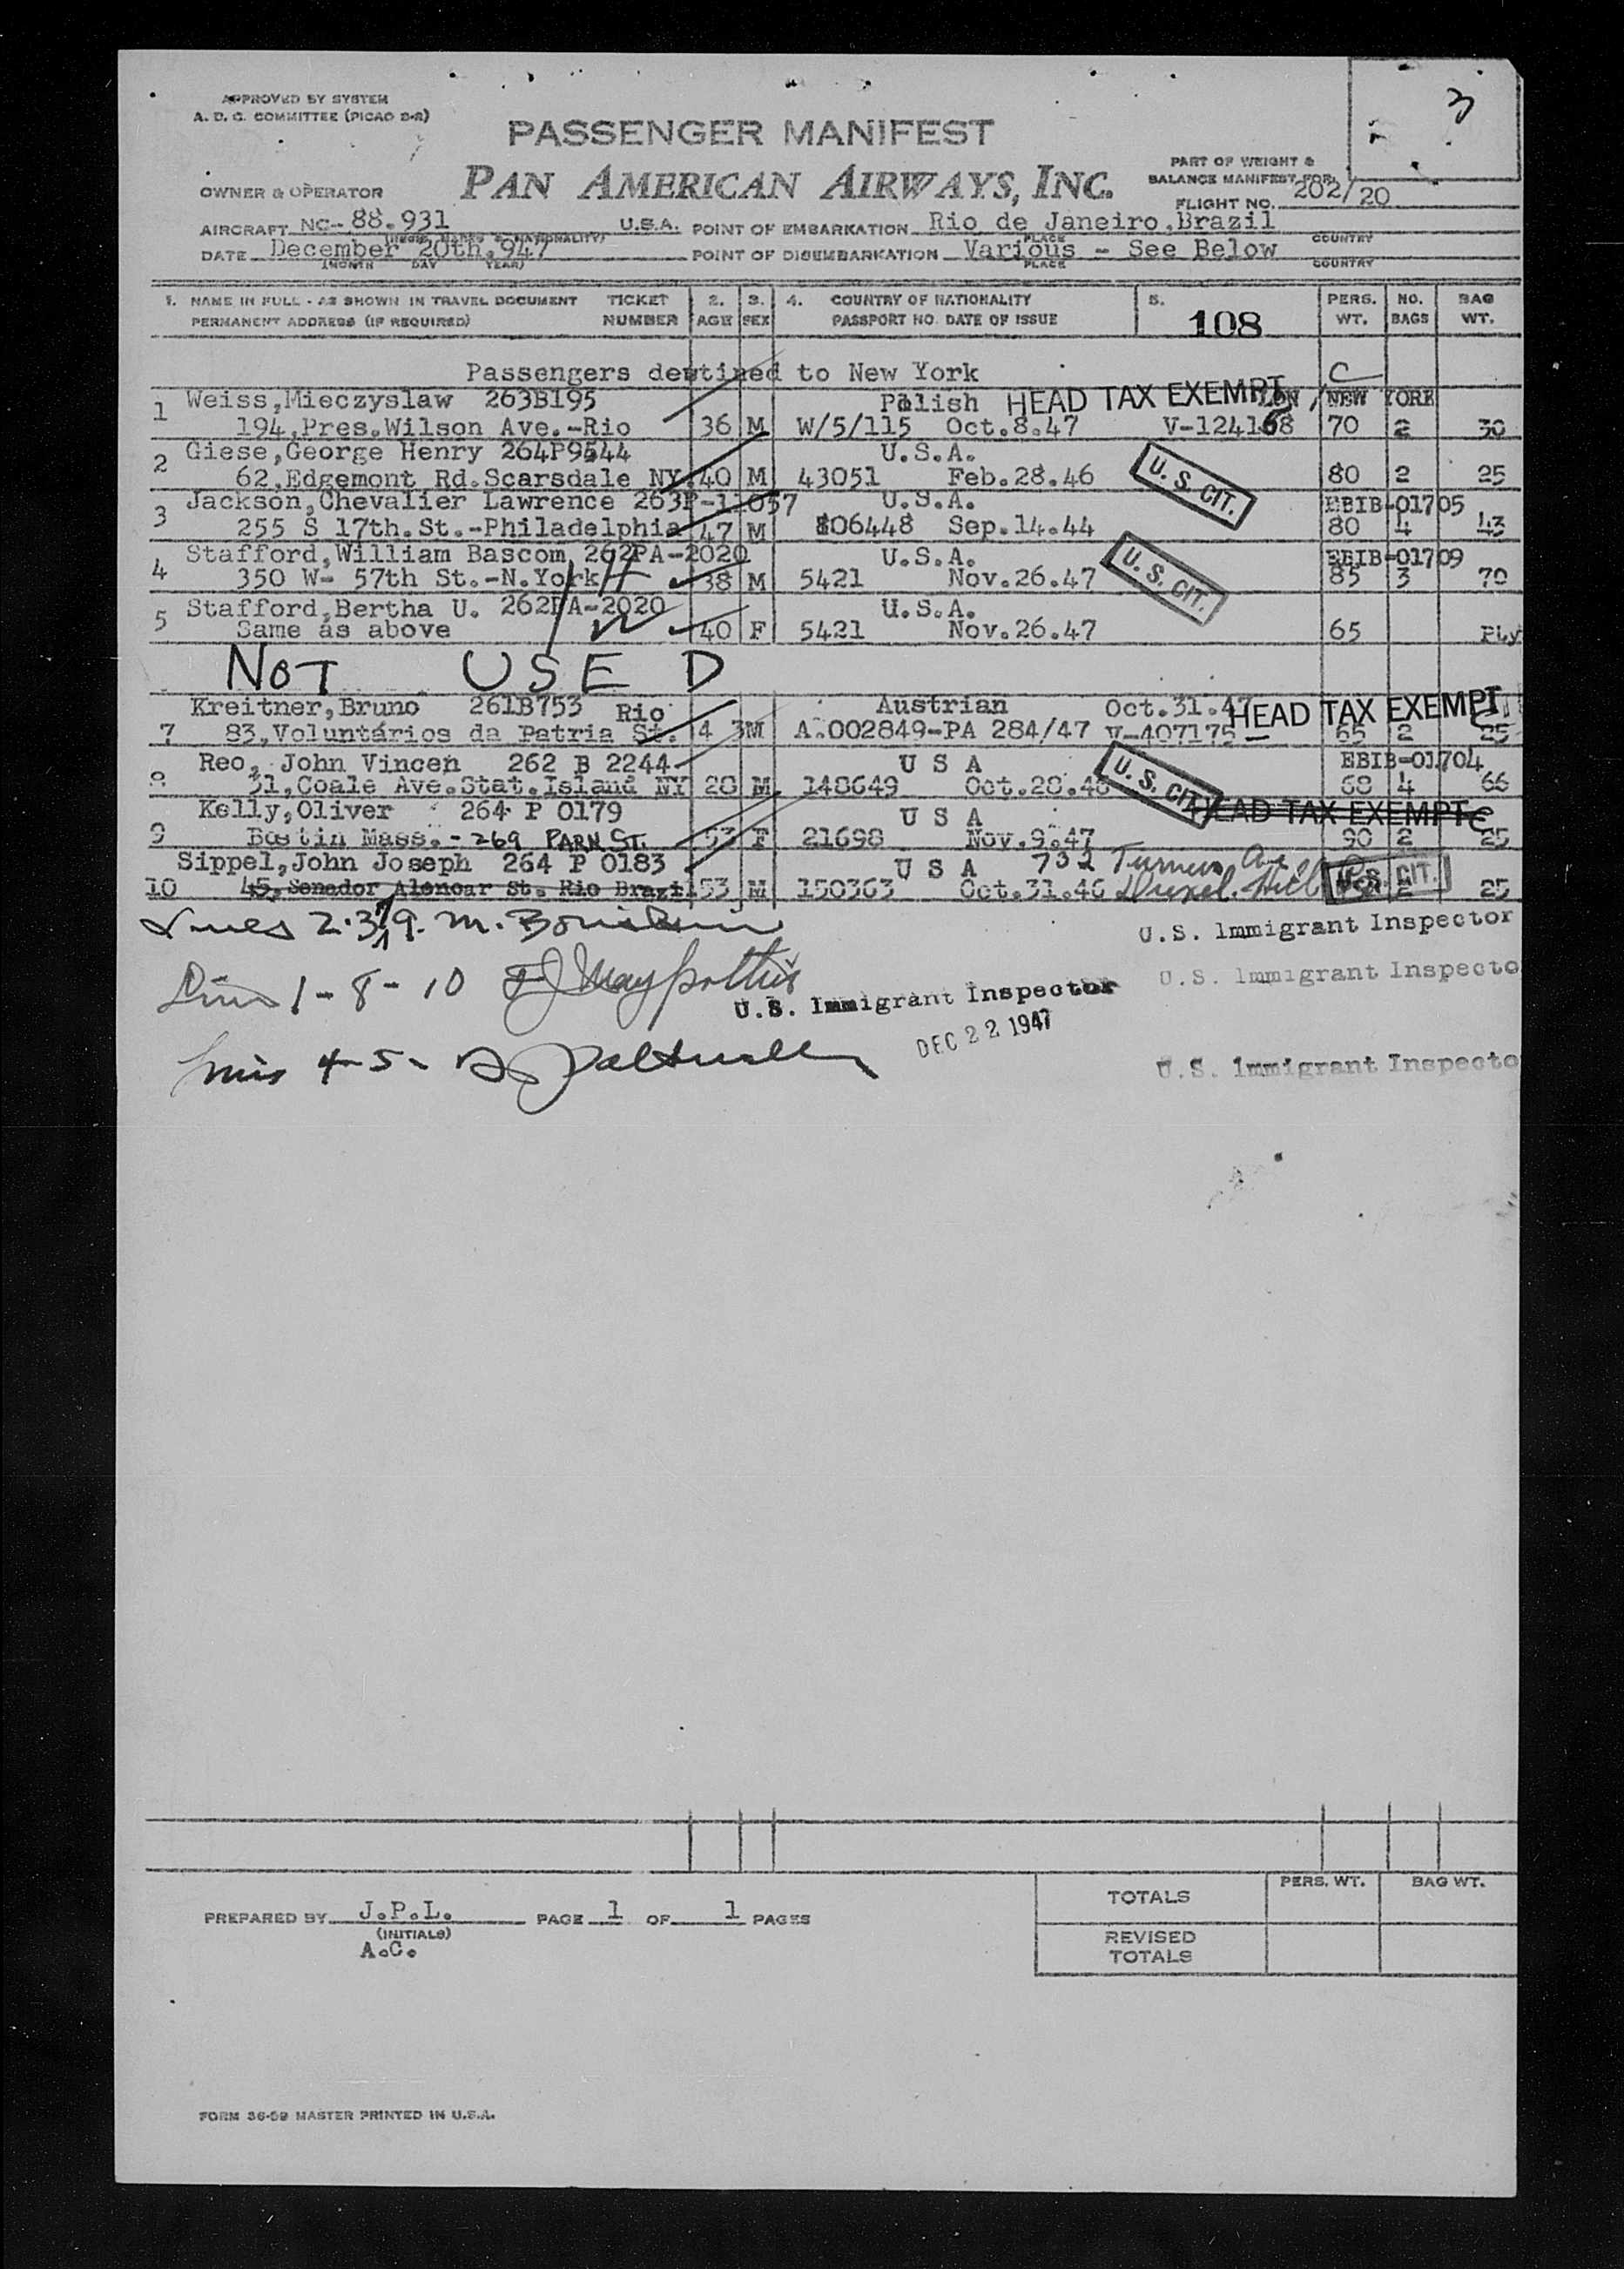 3
APPROVED BY SYSTEM
A. D. C. COMMITTEE (PICAO 2-2)
PASSENGER MANIFEST
PAN AMERICAN AIRWAYS, INC.
PART OF WEIGHT &
BALANCE MANIFEST FOR
OWNER & OPERATOR
FLIGHT NO. 202/20
AIRCRAFT NC-88.931 U.S.A. POINT OF EMBARKATION Rio de Janeiro,Brazil
PLACE COUNTRY
DATE December 20th.947 POINT OF DISEMBARKATION Various - See Below
(MONTH DAY YEAR) PLACE COUNTRY
1. NAME IN FULL - AS SHOWN IN TRAVEL DOCUMENT TICKET 2. 3. 4. COUNTRY OF NATIONALITY 5. PERS. NO. BAG
PERMANENT ADDRESS (IF REQUIRED) NUMBER AGE SEX PASSPORT NO. DATE OF ISSUE 108 WT. BAGS WT.
Passengers destined to New York C
Weiss,Mieczyslaw 263B195 Polish HEAD TAX EXEMPT NEW YORK
1 194,Pres.Wilson Ave.-Rio 36 M W/5/115 Oct.8.47 V-124168 70 2 30
Giese,George Henry 264P9544 U.S.A.
2 62,Edgemont Rd.Scarsdale NY. 40 M 43051 Feb.28.46 U. S. CIT. 80 2 25
Jackson,Chevalier Lawrence 263P-11057 U.S.A. EBIB-01705
3 255 S 17th.St.-Philadelphia 47 M 106448 Sep.14.44 80 4 43
Stafford,William Bascom 262PA-2020 U.S.A. EBIB-01709
4 350 W- 57th St.-N.York 38 M 5421 Nov.26.47 U. S. CIT. 85 3 70
Stafford,Bertha U. 262PA-2020 U.S.A.
5 Same as above 40 F 5421 Nov.26.47 65 PLy
NOT USED
Kreitner,Bruno 261B753 Rio Austrian Oct.31.47 HEAD TAX EXEMPT
7 83,Voluntários da Patria St. 4 3 M A.002849-PA 284/47 V-407175 65 2 25
Reo, John Vincen 262 B 2244 U S A EBIB-01704
8 31,Coale Ave.Stat.Island NY 28 M 148649 Oct.28.46 U. S. CIT. 68 4 66
Kelly,Oliver 264 P 0179 U S A HEAD TAX EXEMPT C
9 Bostin Mass. - 269 PARK ST. 53 F 21698 Nov.9.47 90 2 25
Sippel,John Joseph 264 P 0183 U S A 732 Turner Ave
10 45,Senador Alencar St. Rio Brazil 53 M 150363 Oct.31.46 Drexel Hill Pa U.S. CIT. 2 25
Lines 2.3.7.9. M.
U.S. Immigrant Inspector
Lines 1-8-10
U.S. Immigrant Inspector
U.S. Immigrant Inspecto
DEC 22 1947
Lines 4-5-
U.S. Immigrant Inspecto
PERS. WT. BAG WT.
TOTALS
PREPARED BY J.P.L. PAGE 1 OF 1 PAGES
(INITIALS)
A.C.
REVISED
TOTALS
FORM 36-59 MASTER PRINTED IN U.S.A.